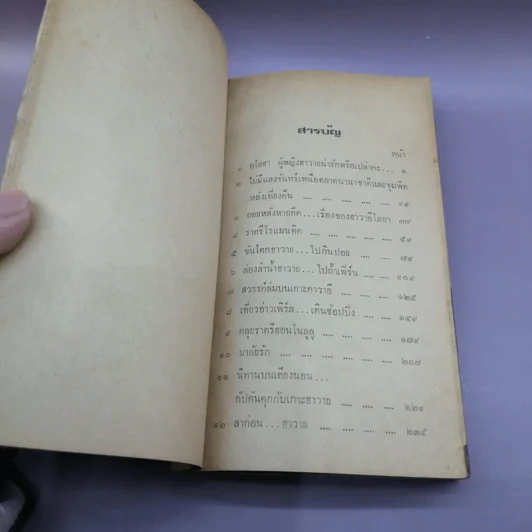 สารบัญ
หน้า
๑ อโลฮา ผู้หญิงฮาวายน่ารักหรือเปล่าคะ... ๑
๒ ไม่มีแสงจันทร์เหนือตลาดนานาชาติและจุมพิต
หลังเที่ยงคืน .... .... .... .... .... ๑๙
๓ ถอยหลังหาอดีต...เรื่องของฮาวายอีโลอา ๓๗
๔ ราตรีโรแมนติค .... .... .... .... ๕๙
๕ ขันโตกฮาวาย...ไปกินปอย .... .... ๗๙
๖ ล่องลำน้ำฮาวาย...ไปถ้ำเฟิร์น .... .... ๑๐๙
๗ สวรรค์ล่มบนเกาะคาวาอี .... .... .... ๑๒๕
๘ เที่ยวอ่าวเพิร์ล...เดินช้อปปิ้ง .... .... ๑๔๙
๙ ตลุยราตรีฮอนโนลูลู .... .... .... ๑๗๙
๑๐ มาลัยรัก .... .... .... .... .... ๒๐๗
๑๑ นิทานบนเตียงนอน...
กัปตันคุกกับเกาะฮาวาย .... .... .... ๒๒๙
๑๒ ลาก่อน...ฮาวาย .... .... .... .... ๒๓๕